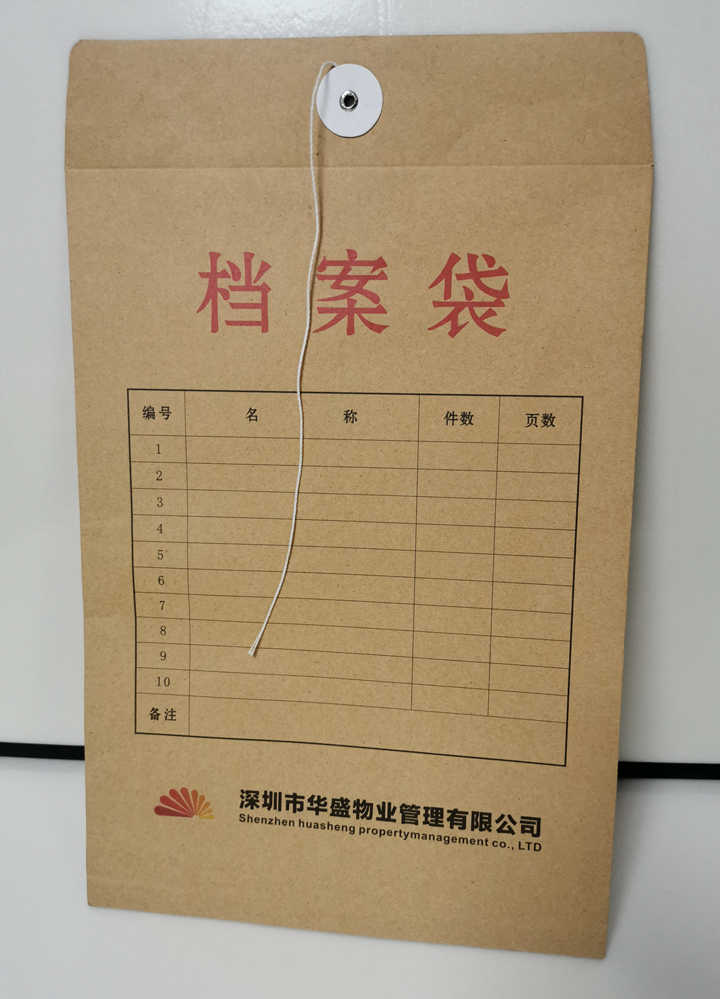 档案袋
编号 名称 件数 页数
1
2
3
4
5
6
7
8
9
10
备注
深圳市华盛物业管理有限公司
Shenzhen huasheng propertymanagement co., LTD